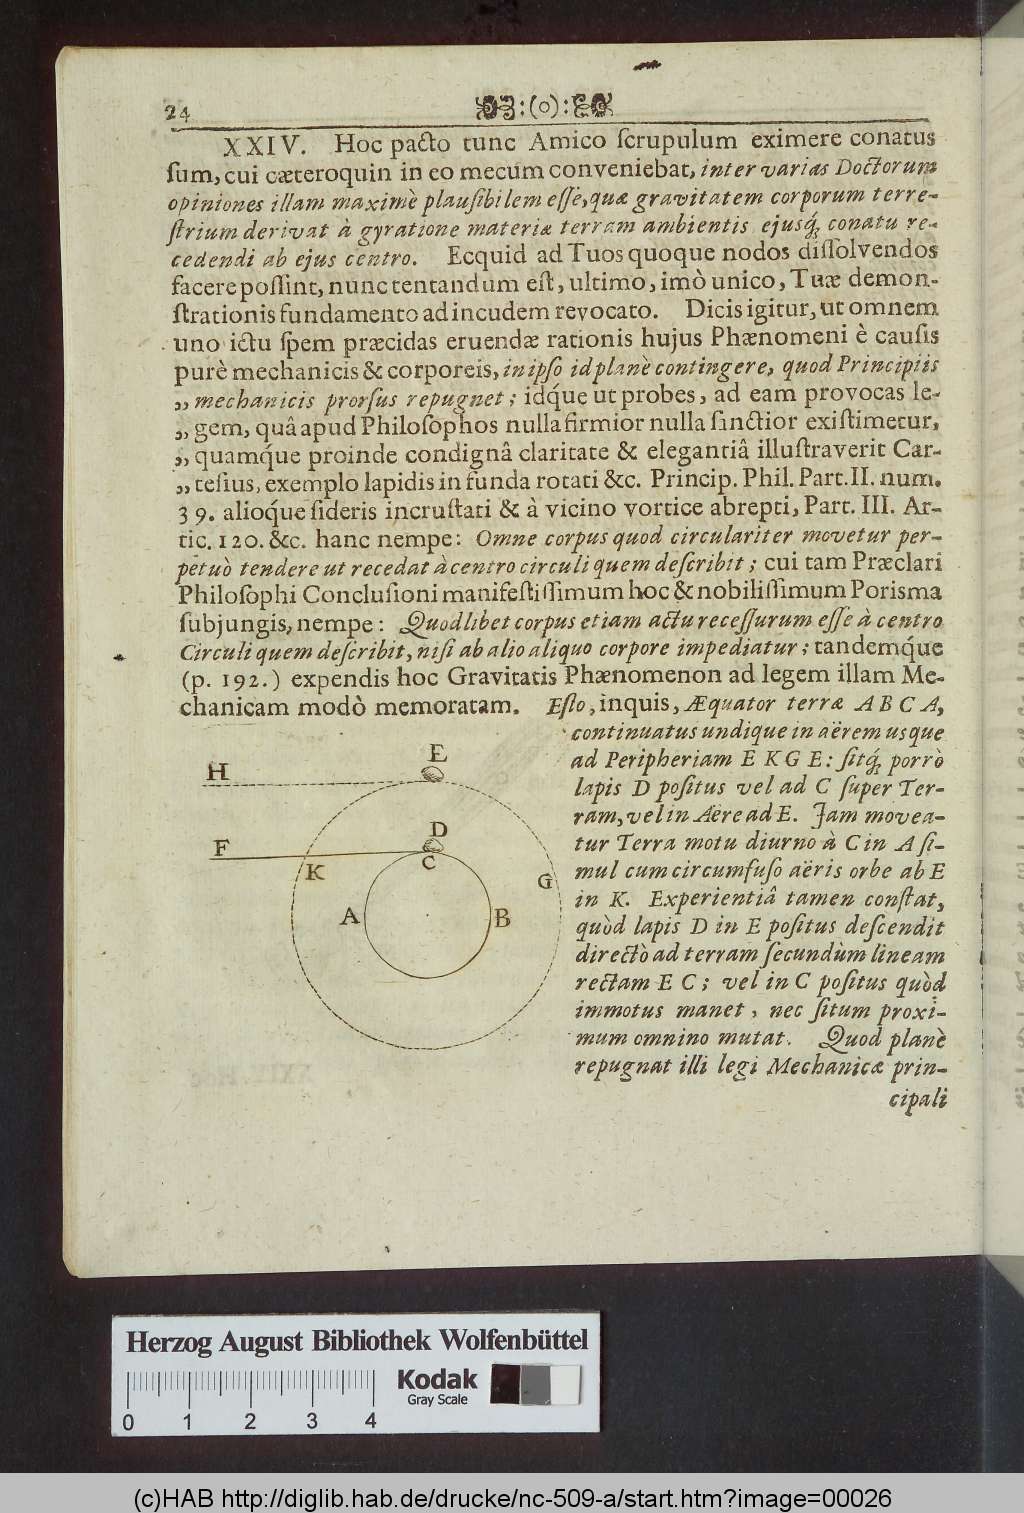 24 :(o):
XXIV. Hoc pacto tunc Amico ſcrupulum eximere conatus
ſum, cui cæteroquin in eo mecum conveniebat, inter varias Doctorum
opiniones illam maximè plauſibilem eſſe, quæ gravitatem corporum terre-
ſtrium derivat à gyratione materiæ terram ambientis ejusq́; conatu re-
cedendi ab ejus centro. Ecquid ad Tuos quoque nodos diſſolvendos
facere poſſint, nunc tentandum eſt, ultimo, imò unico, Tuæ demon-
ſtrationis fundamento ad incudem revocato. Dicis igitur, ut omnem
uno ictu ſpem præcidas eruendæ rationis hujus Phænomeni è cauſis
purè mechanicis & corporeis, in ipſo id planè contingere, quod Principiis
„ mechanicis prorſus repugnet; idq́ue ut probes, ad eam provocas le-
„ gem, quâ apud Philoſophos nulla firmior nulla ſanctior exiſtimetur,
„ quamq́ue proinde condignâ claritate & elegantiâ illuſtraverit Car-
„ teſius, exemplo lapidis in funda rotati &c. Princip. Phil. Part. II. num.
39. alioq́ue ſideris incruſtati & à vicino vortice abrepti, Part. III. Ar-
tic. 120. &c. hanc nempe: Omne corpus quod circulariter movetur per-
petuò tendere ut recedat à centro circuli quem deſcribit; cui tam Præclari
Philoſophi Concluſioni manifeſtiſſimum hoc & nobiliſſimum Porisma
ſubjungis, nempe: Quodlibet corpus etiam actu receſſurum eſſe à centro
Circuli quem deſcribit, niſi ab alio aliquo corpore impediatur; tandemq́ue
(p. 192.) expendis hoc Gravitatis Phænomenon ad legem illam Me-
chanicam modò memoratam. Eſto, inquis, Æquator terræ A B C A,
continuatus undique in aërem usque
ad Peripheriam E K G E: ſitq́; porrò
lapis D poſitus vel ad C ſuper Ter-
ram, vel in Aëre ad E. Jam movea-
tur Terra motu diurno à C in A ſi-
mul cum circumfuſo aëris orbe ab E
in K. Experientiâ tamen conſtat,
quòd lapis D in E poſitus deſcendit
directò ad terram ſecundùm lineam
rectam E C; vel in C poſitus quòd
immotus manet, nec ſitum proxi-
mum omnino mutat. Quod planè
repugnat illi legi Mechanicæ prin-
cipali
E
H
D
F
C
K
G
A
B
Herzog August Bibliothek Wolfenbüttel
Kodak
Gray Scale
0 1 2 3 4
(c)HAB http://diglib.hab.de/drucke/nc-509-a/start.htm?image=00026